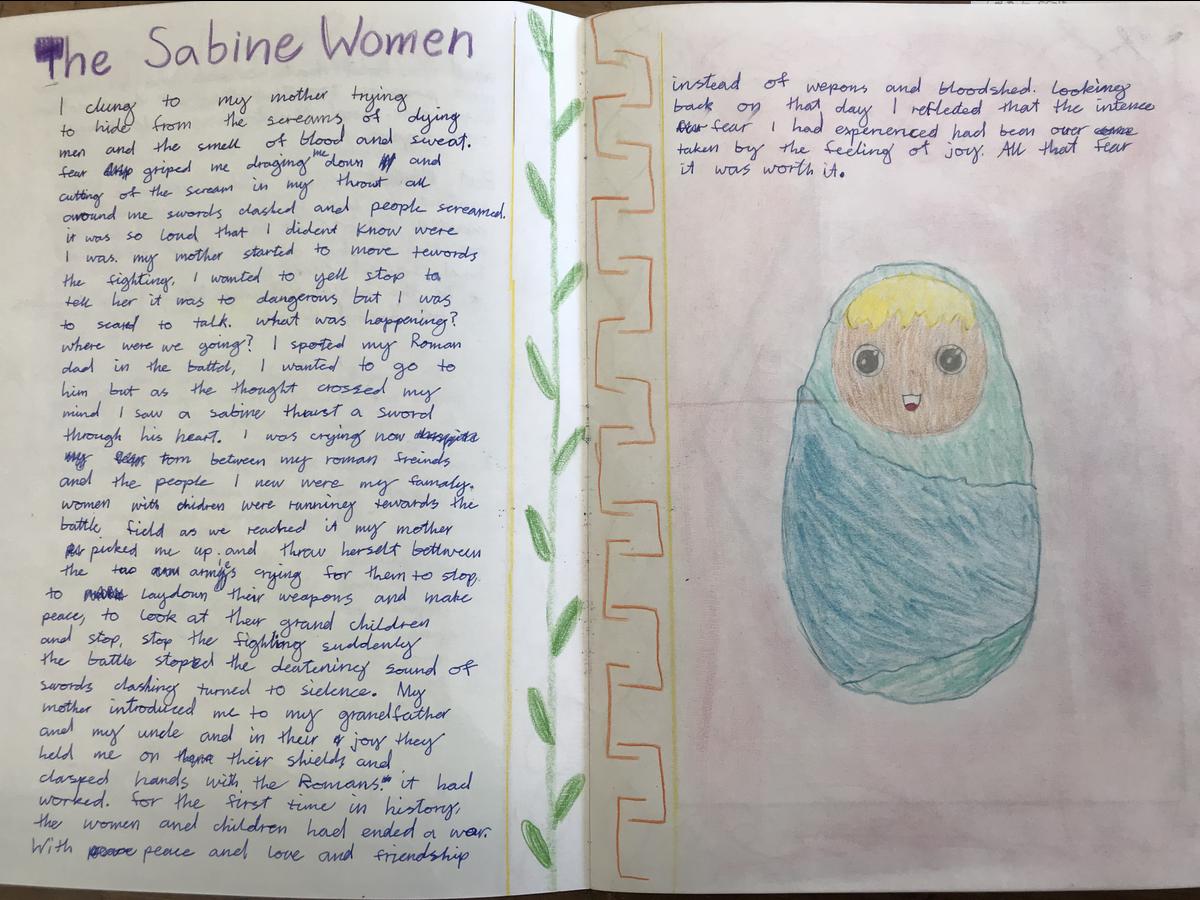 The Sabine Women
I clung to my mother trying
to hide from the screams of dying
men and the smell of blood and sweat.
fear griped me draging me down and
cutting of the scream in my throut all
around me swords clashed and people screamed.
it was so loud that I dident know were
I was. my mother started to move towords
the fighting. I wanted to yell stop to
tell her it was to dangerous but I was
to scard to talk. what was happening?
where were we going? I spoted my Roman
dad in the battel, I wanted to go to
him but as the thought crossed my
mind I saw a sabine thrust a sword
through his heart. I was crying now
torn between my roman freinds
and the people I new were my famaly.
women with children were runniney towards the
battle field as we reached it my mother
picked me up and throw herself bettween
the armys crying for them to stop
to laydown their weapons and make
peace, to look at their grand children
and stop, stop the fighting suddenly
the battle stoped the deafening sound of
swords clashing turned to sielence. My
mother introduced me to my grandfather
and my uncle and in their joy they
held me on their shields and
clasped hands with the Romans. it had
worked. for the first time in history,
the women and children had ended a war.
With peace and love and friendship
instead of wepons and bloodshed. looking
back on that day I reflected that the intence
fear I had experienced had been over
taken by the feeling of joy. All that fear
it was worth it.